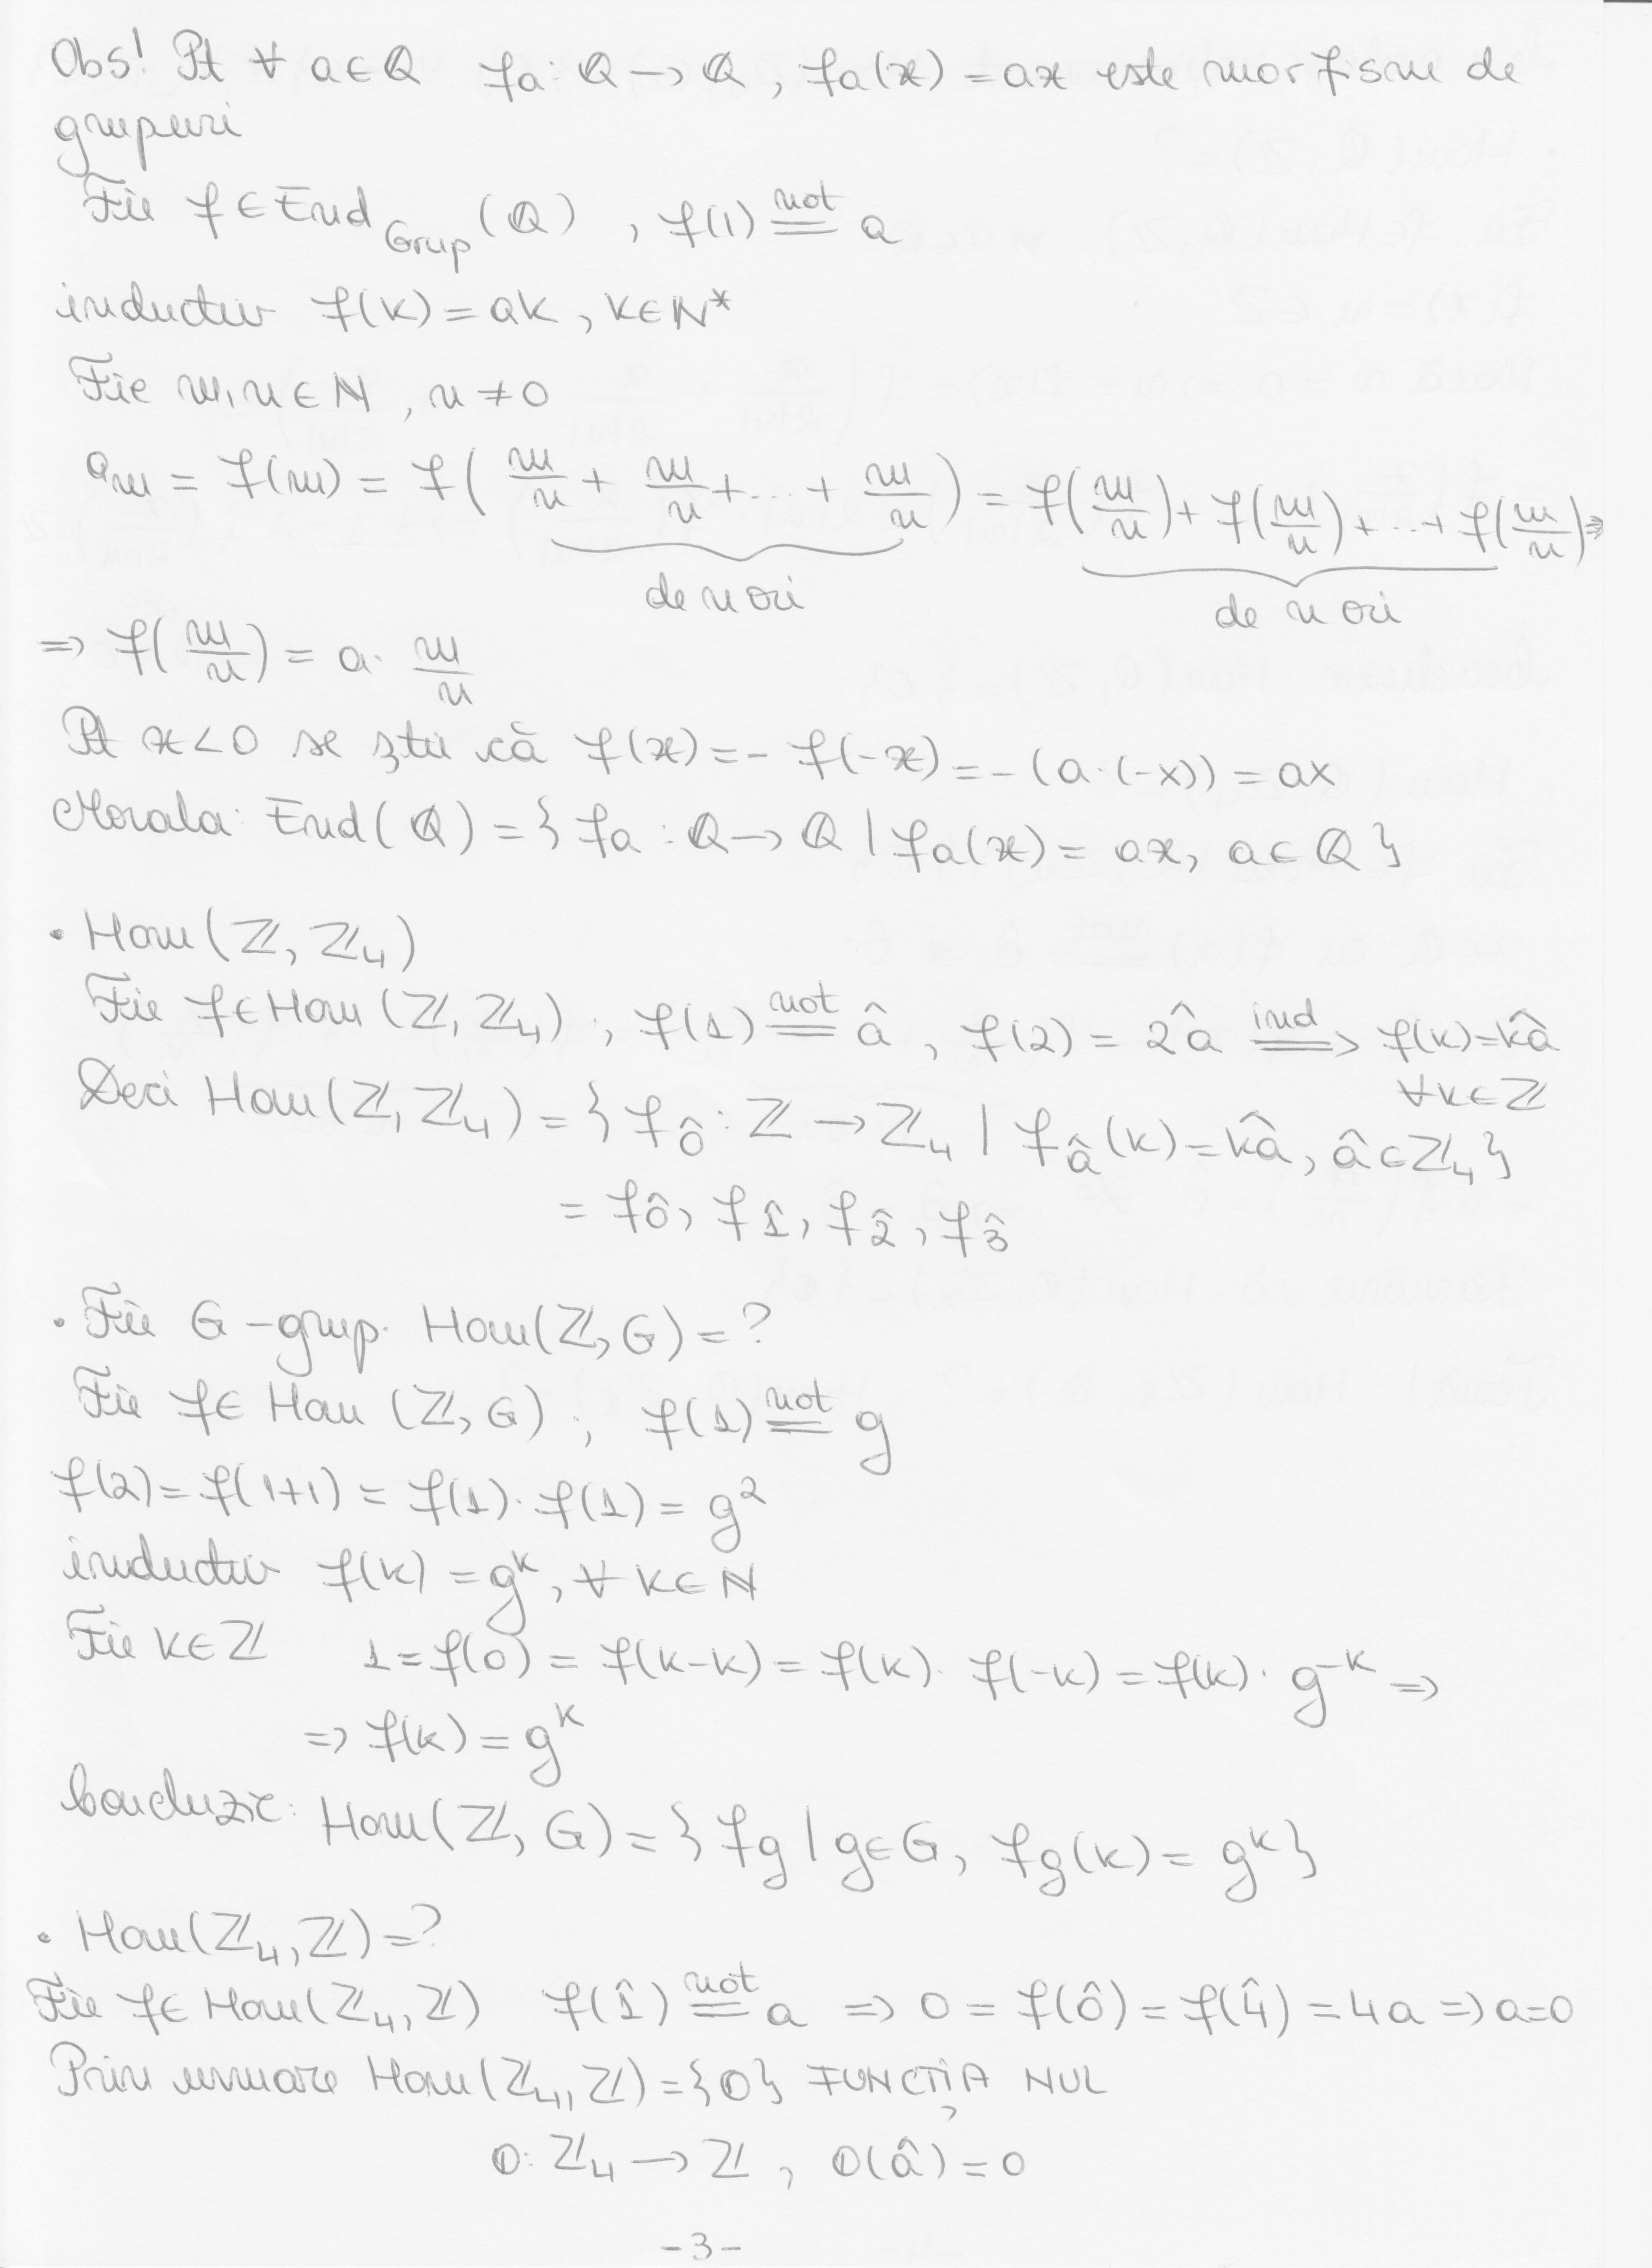 Obs! Pt ∀ a∈ℚ fa: ℚ → ℚ, fa(x) = ax este morfism de
grupuri
Fie f ∈ End_Grup (ℚ), f(1) not= a
inductiv f(k) = ak, k∈ℕ*
Fie m,n ∈ ℕ, n ≠ 0
am = f(m) = f( m/n + m/n + ... + m/n ) = f(m/n) + f(m/n) + ... + f(m/n) ⇒
de n ori de n ori
⇒ f(m/n) = a· m/n
Pt x<0 se știe că f(x) = - f(-x) = -(a·(-x)) = ax
Morala: End(ℚ) = { fa : ℚ → ℚ | fa(x) = ax, a∈ℚ }
• Hom(ℤ, ℤ₄)
Fie f∈Hom(ℤ, ℤ₄); f(1) not= â, f(2) = 2â ind⇒ f(k)=kâ
∀k∈ℤ
Deci Hom(ℤ, ℤ₄) = { f_ô : ℤ → ℤ₄ | f_â(k) = kâ, â∈ℤ₄ }
= f_0̂, f_1̂, f_2̂, f_3̂
• Fie G - grup. Hom(ℤ, G) = ?
Fie f∈ Hom (ℤ, G); f(1) not= g
f(2) = f(1+1) = f(1)·f(1) = g²
inductiv f(k) = gᵏ, ∀ k∈ℕ
Fie k∈ℤ 1 = f(0) = f(k-k) = f(k)· f(-k) = f(k)· g⁻ᵏ ⇒
⇒ f(k) = gᵏ
Concluzie: Hom(ℤ, G) = { fg | g∈G, fg(k) = gᵏ }
• Hom(ℤ₄, ℤ) = ?
Fie f∈ Hom(ℤ₄, ℤ) f(1̂) not= a ⇒ 0 = f(0̂) = f(4̂) = 4a ⇒ a=0
Prin urmare Hom(ℤ₄, ℤ) = {0} FUNCȚIA NUL
0: ℤ₄ → ℤ, 0(â) = 0
-3-